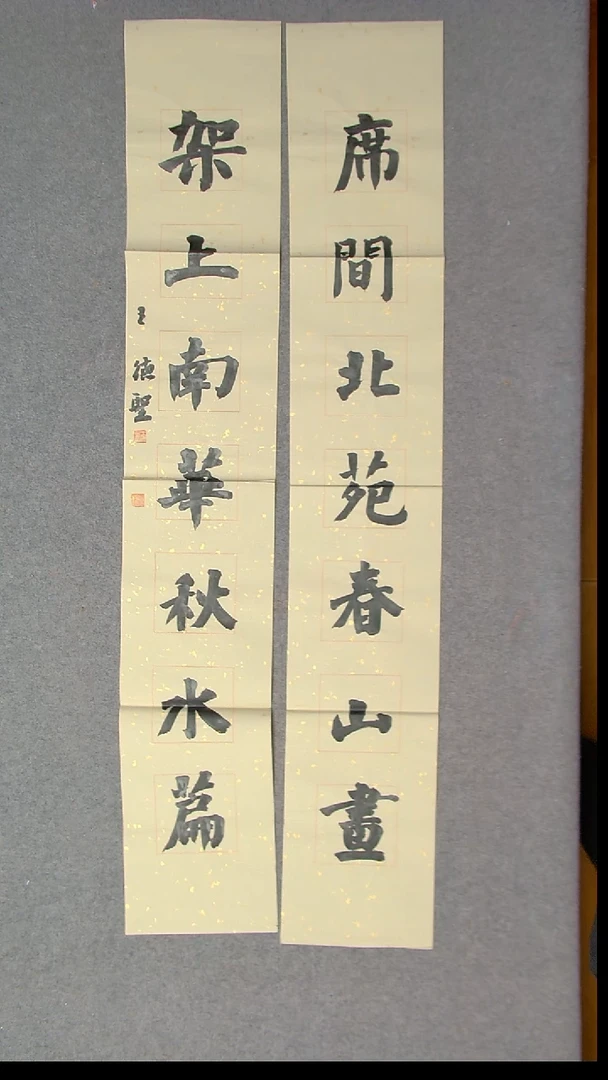 席間北苑春山畫
架上南華秋水篇
王德聖